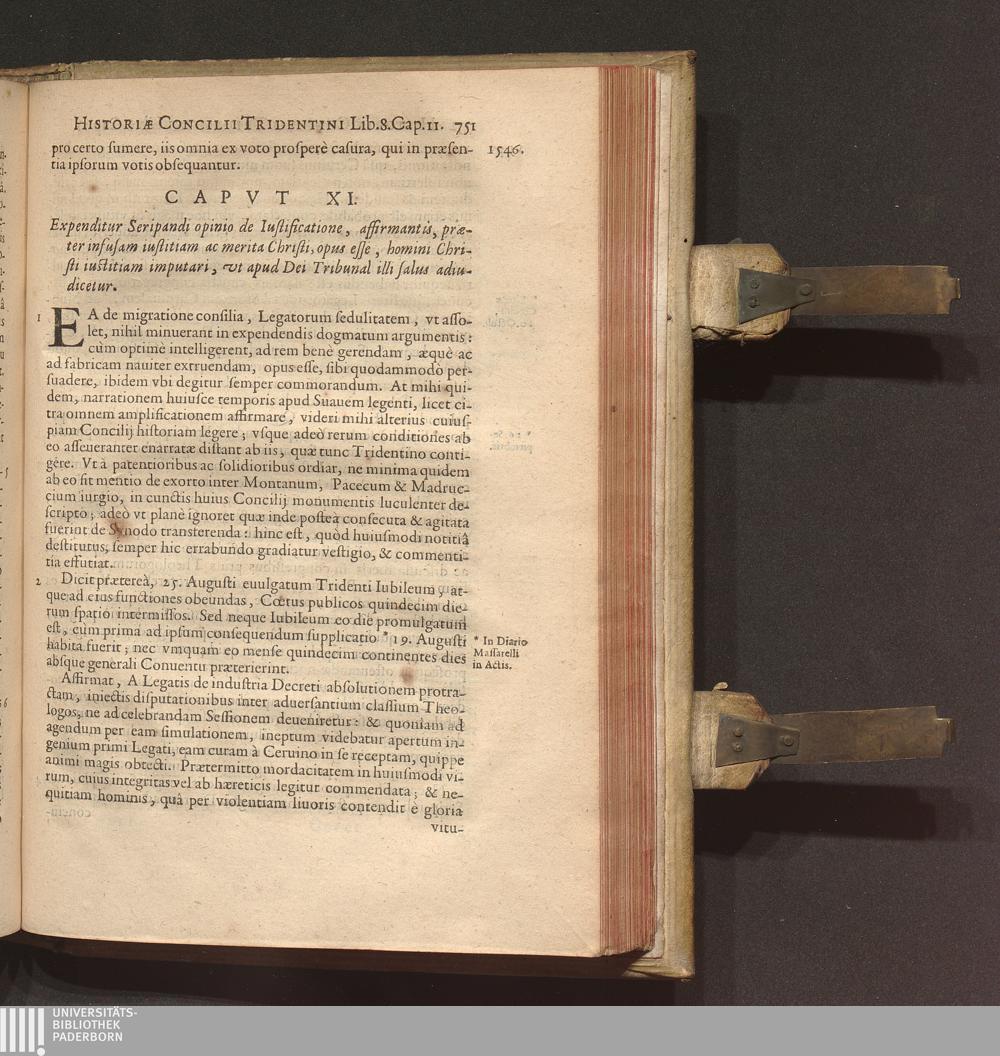 HISTORIÆ CONCILII TRIDENTINI Lib.8.Cap.11. 751
pro certo sumere, iis omnia ex voto prosperè casura, qui in præsen-
tia ipsorum votis obsequantur.
1546.
CAPVT XI.
Expenditur Seripandi opinio de Iustificatione, affirmantis, præ-
ter infusam iustitiam ac merita Christi, opus esse, homini Chri-
sti iustitiam imputari, vt apud Dei Tribunal illi salus adiu-
dicetur.
1 EA de migratione consilia, Legatorum sedulitatem, vt asso-
let, nihil minuerant in expendendis dogmatum argumentis:
cùm optimè intelligerent, ad rem benè gerendam, æquè ac
ad fabricam nauiter extruendam, opus esse, sibi quodammodo per-
suadere, ibidem vbi degitur semper commorandum. At mihi qui-
dem, narrationem huiusce temporis apud Suauem legenti, licet ci-
tra omnem amplificationem affirmare, videri mihi alterius cuius-
piam Concilij historiam legere; vsque adeò rerum conditiones ab
eo asseueranter enarratæ distant ab iis, quæ tunc Tridentino conti-
gêre. Vt à patentioribus ac solidioribus ordiar, ne minima quidem
ab eo fit mentio de exorto inter Montanum, Pacecum & Madruc-
cium iurgio, in cunctis huius Concilij monumentis luculenter de-
scripto; adeò vt planè ignoret quæ inde postea consecuta & agitata
fuerint de Synodo transferenda: hinc est, quòd huiusmodi notitiâ
destitutus, semper hic errabundo gradiatur vestigio, & commenti-
tia effutiat.
2 Dicit prætereà, 25. Augusti euulgatum Tridenti Iubileum, at-
que ad eius functiones obeundas, Cœtus publicos quindecim die-
rum spatio intermissos. Sed neque Iubileum eo die promulgatum
est, cùm prima ad ipsum consequendum supplicatio * 19. Augusti
habita fuerit; nec vmquam eo mense quindecim continentes dies
absque generali Conuentu præterierint.
* In Diario
Massarelli
in Actis.
Affirmat, A Legatis de industria Decreti absolutionem protra-
ctam, iniectis disputationibus inter aduersantium classium Theo-
logos, ne ad celebrandam Sessionem deueniretur: & quoniam ad
agendum per eam simulationem, ineptum videbatur apertum in-
genium primi Legati, eam curam à Ceruino in se receptam, quippe
animi magis obtecti. Prætermitto mordacitatem in huiusmodi vi-
rum, cuius integritas vel ab hæreticis legitur commendata; & ne-
quitiam hominis, quâ per violentiam liuoris contendit è gloria
vitu-
UNIVERSITÄTS-
BIBLIOTHEK
PADERBORN